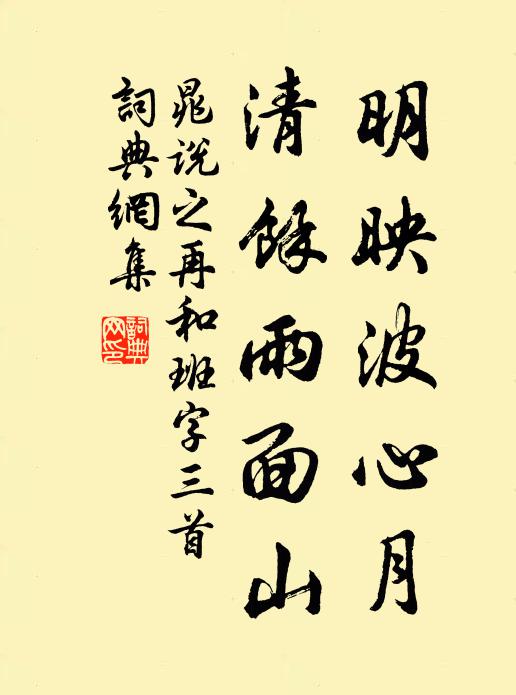 明映波心月
清餘雨面山
晁說之再和班字三首
詞典網集
詞典網印